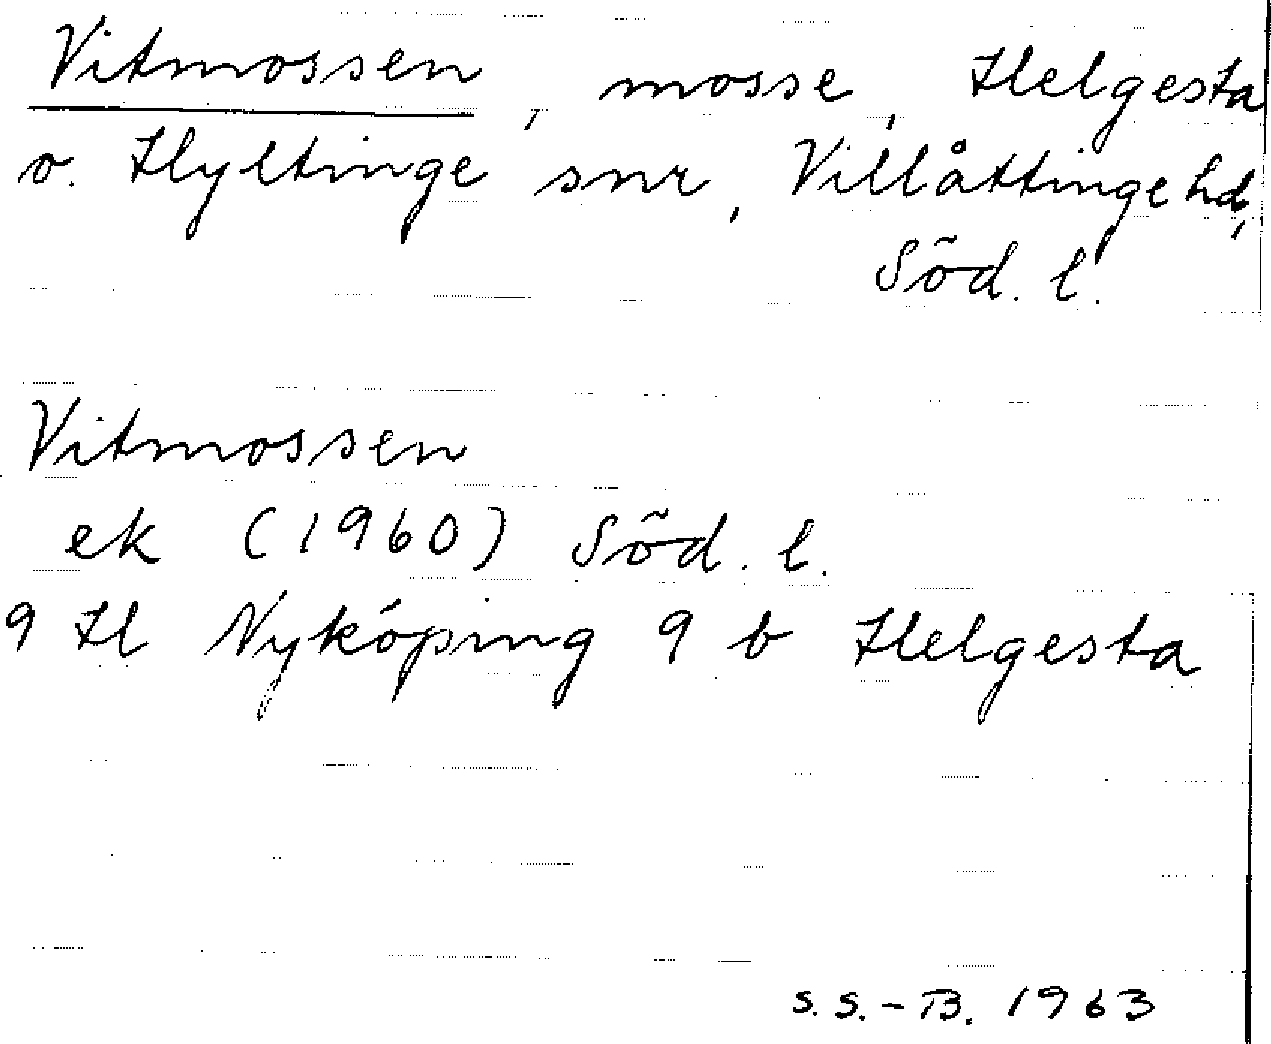 Vitmossen, mosse, Helgesta
o. Hyltinge snr, Villåttinge hd,
Söd. l.
Vitmossen
ek (1960) Söd. l.
9 H Nyköping 9 b Helgesta
S.S.-B. 1963